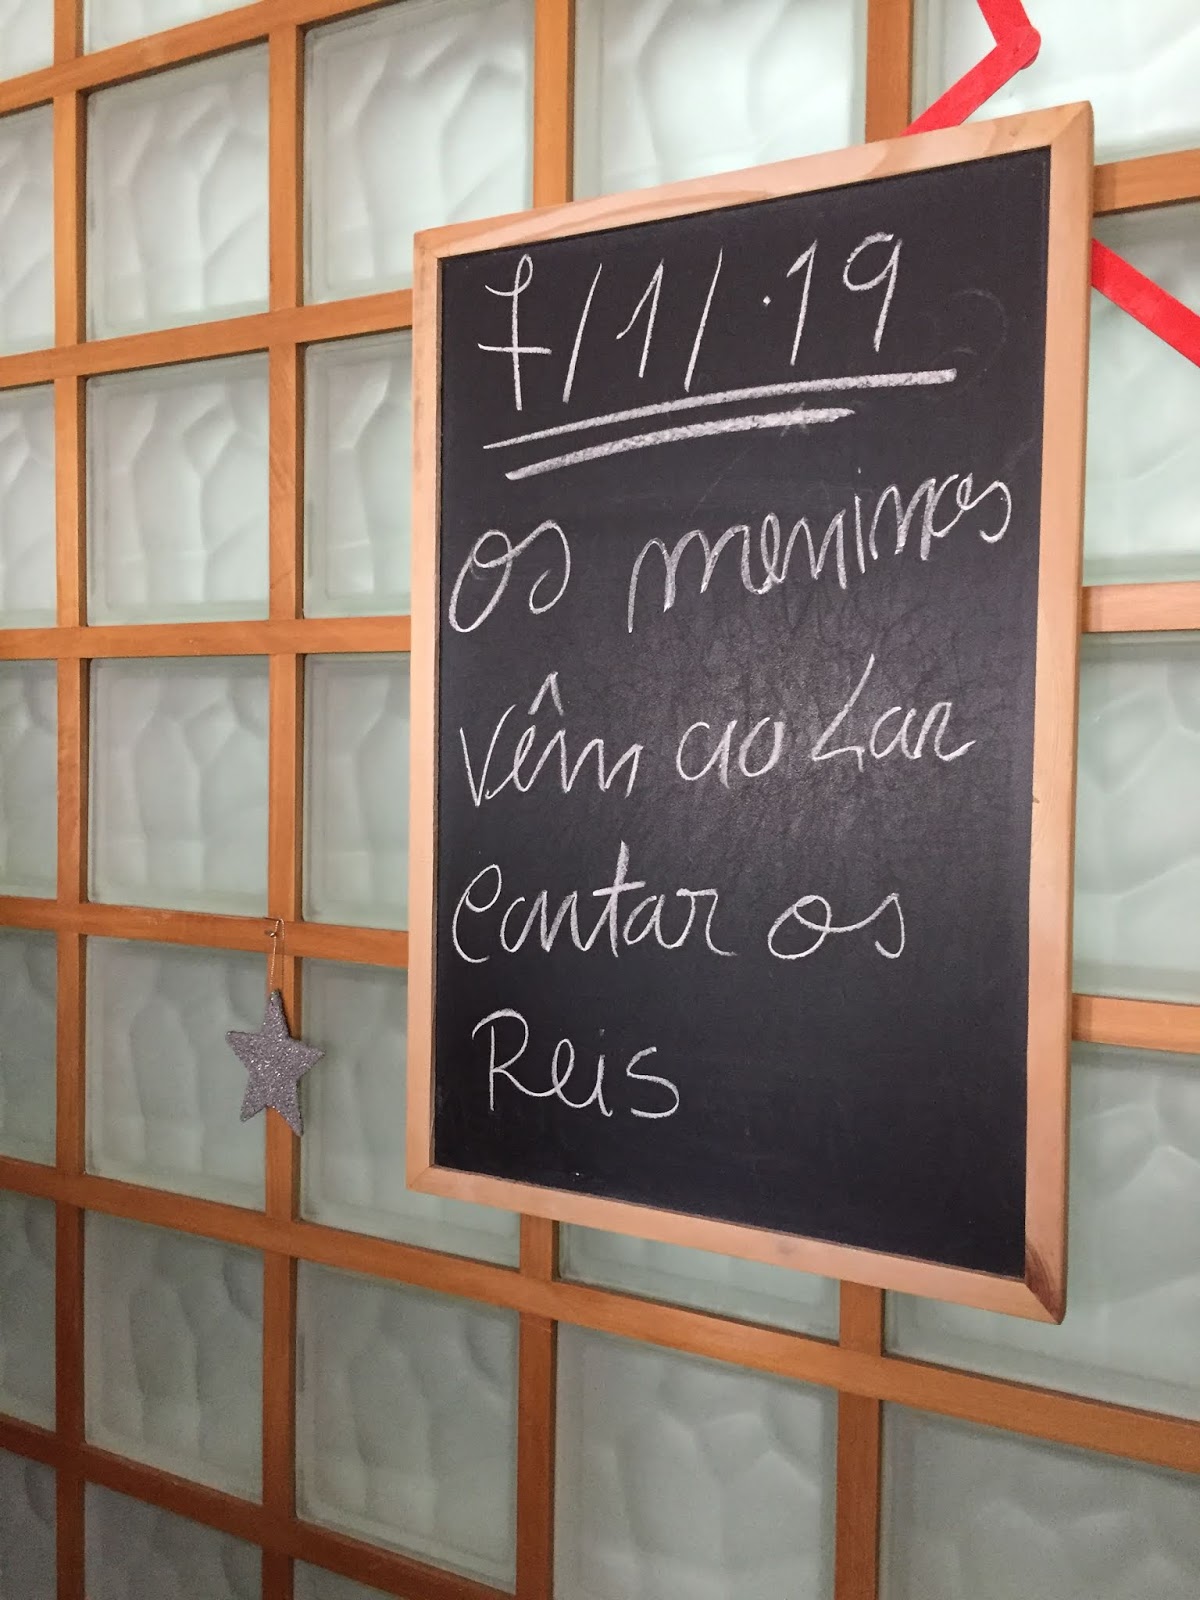 7/1/.19
Os meninos
vêm ao Lar
Cantar os
Reis